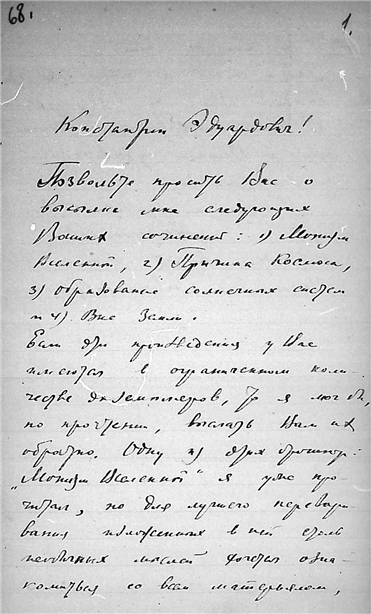 68.
1.
Константин Эдуардович!
Позвольте просить Вас о
высылке мне следующих
Ваших сочинений: 1) Монизм
Вселенной, 2) Причина Космоса,
3) Образование солнечных систем
и 4) Вне Земли.
Если эти произведения у Вас
имеются в ограниченном коли-
честве экземпляров, то я мог бы,
по прочтении, выслать Вам их
обратно. Одну из этих брошюр:
„Монизм Вселенной“ я уже про-
читал, но для лучшего перевари-
вания изложенных в ней столь
необычных мыслей хочется озна-
комиться со всем материалом,